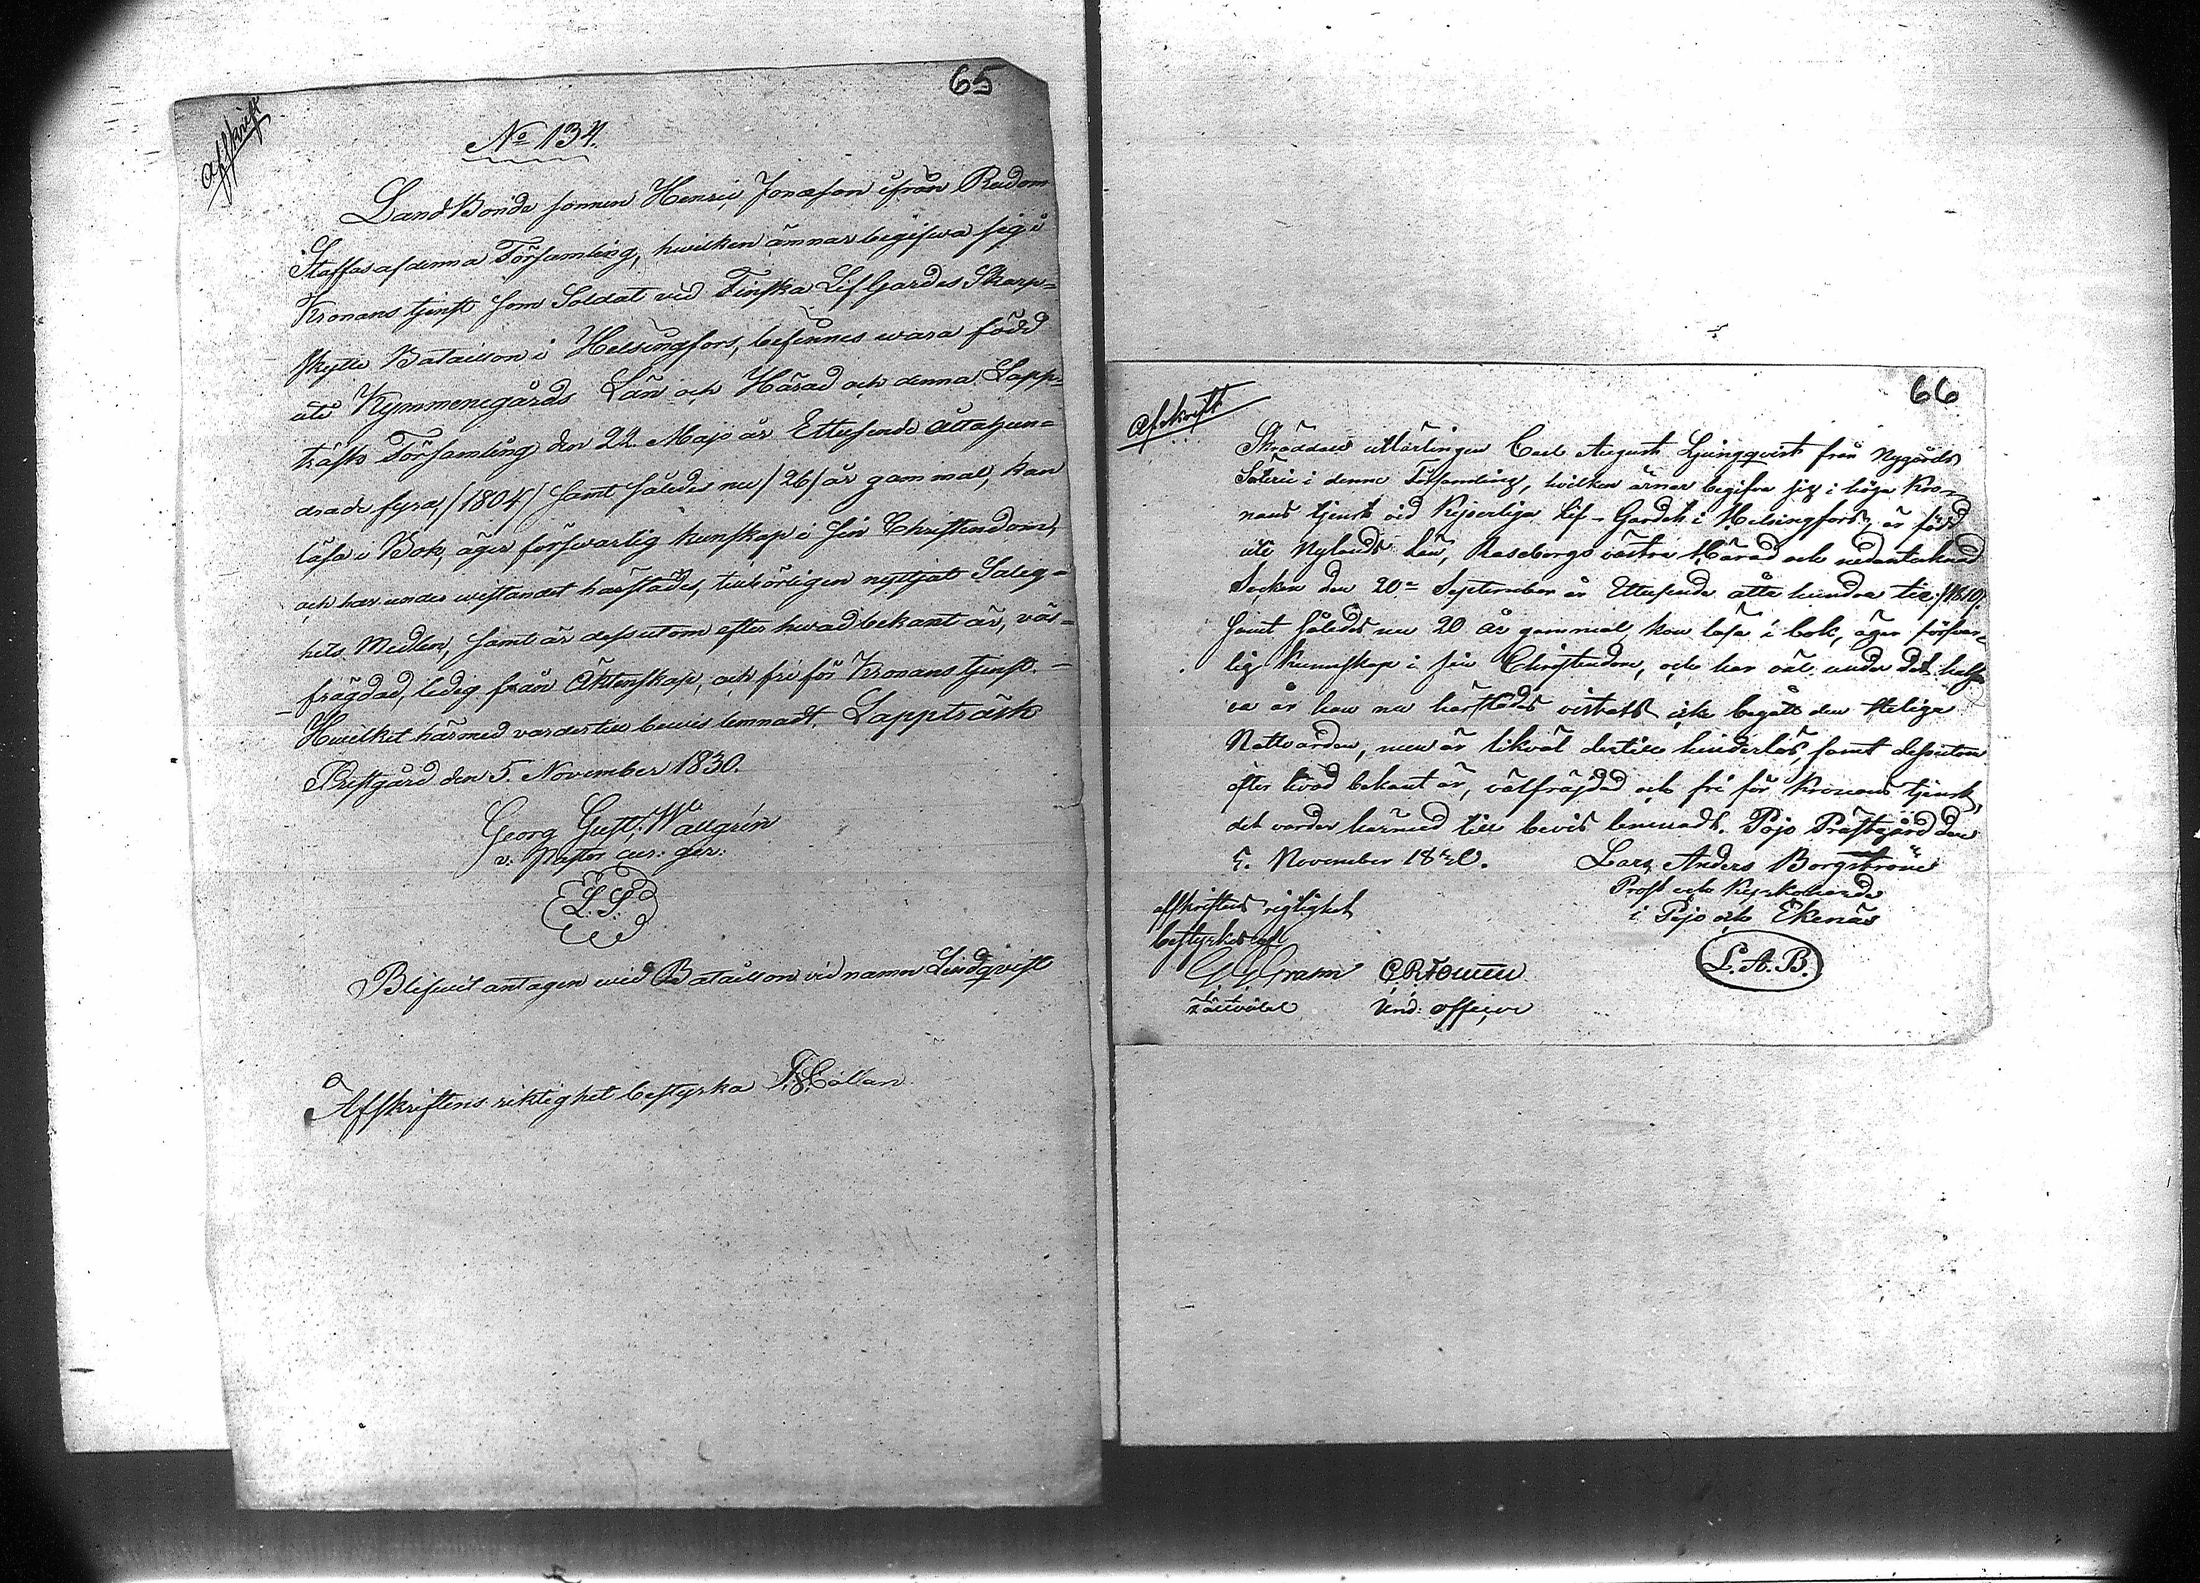 65
Afskrift
No 134.
Land Bonde sonnen Henric Jonasson ifrån Rudom
Staffas af denna Församling, hwilken ämnar begifwa sig i
Kronans tjenst som Soldat vid Finska Lif Gardes Skarp-
skytte Bataillon i Helsingfors, befinnes wara född
uti Kymmenegårds Län och Härad och denna Lapp-
träsk Församling den 22 Majo år Ettusende åttahun-
drade fyra /1804/ samt således nu /26/ år gammal, kan
läsa i Bok, äger förswarlig kunskap i sin Christendom,
och har under wistandet härstädes, tillbörligen nyttjat Salig-
hets Medlen, samt är dessutom efter hwad bekant är, väl-
frägdad, ledig från Äktenskap, och fri för Kronans tjenst. -
Hwilket härmed varder till bewis lemnadt. Lappträsk
Prestgård den 5. November 1830.
Georg Gust: Wallgrén
v. Pastor cur: ger:
L. S.
Blifwit antagen wid Bataillon vid namn Lindqvist
Afskriftens riktighet bestyrka
66
Afskrift
Skräddare utlärlingen Carl August Ljungqvist från Nygårds
Säterie i denna Församling, hvilken ärnar begifva sig i höga Kro-
nans tjenst vid Kejserliga Lif-Gardet i Helsingfors, är född
uti Nylands Län, Raseborgs västra Härad och nedantecknad
Socken den 20 September år Ettusende åtta hundra tio /1810/.
samt således nu 20 år gammal, kan läsa i bok, äger försvar-
lig kunnskap i sin Christendom, och har väl under det half-
va år han nu härstädes vistats icke begått den Heliga
Nattvarden, men är likväl dertill hinderlös, samt dessutom
efter hvad bekant är, välfräjdad och fri för Kronans tjenst,
det varder härmed till bevis lemnadt. Pojo Prästgård den
5. November 1830. Lars Anders Borgström
Prost och Kyrkoherde
i Pojo och Ekenäs
L. A. B.
Afskriftens rigtighet
bestyrkes af
Und: officer